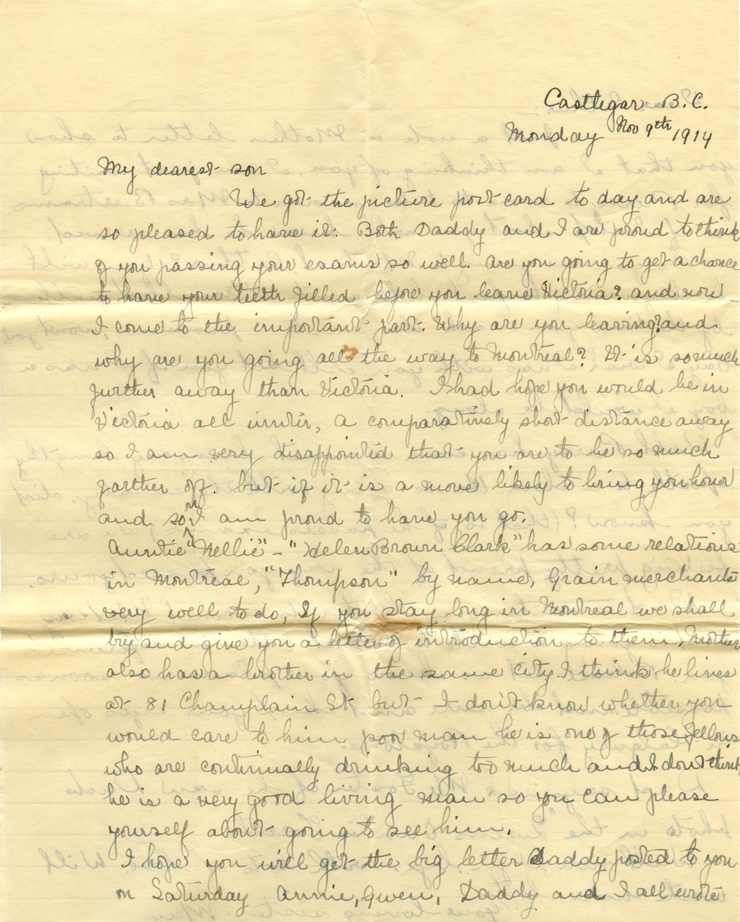 Castlegar B.C.
Monday Nov 9th 1914
My dearest son
We got the picture post card to day and are
so pleased to have it. Both Daddy and I are proud to think
of you passing your exams so well. are you going to get a chance
to have your teeth filled before you leave Victoria? and now
I come to the important part. Why are you leaving? and
why are you going all the way to Montreal? It is so much
further away than Victoria. I had hope you would be in
Victoria all winter, a comparatively short distance away
so I am very disappointed that you are to be so much
farther off. but if it is a move likely to bring you honor
and so on I am proud to have you go.
Auntie "Nellie" - "Helen Brown Clark" has some relations
in Montreal, "Thompson" by name, Grain merchants
very well to do, If you stay long in Montreal we shall
try and give you a letter of introduction to them, Mother
also has a brother in the same city I think he lives
at 81 Champlain St but I don't know whether you
would care to him poor man he is one of those fellows
who are continually drinking too much and I don't think
he is a very good living man so you can please
yourself about going to see him.
I hope you will get the big letter Daddy posted to you
on Saturday Annie, Gwen, Daddy and I all wrote